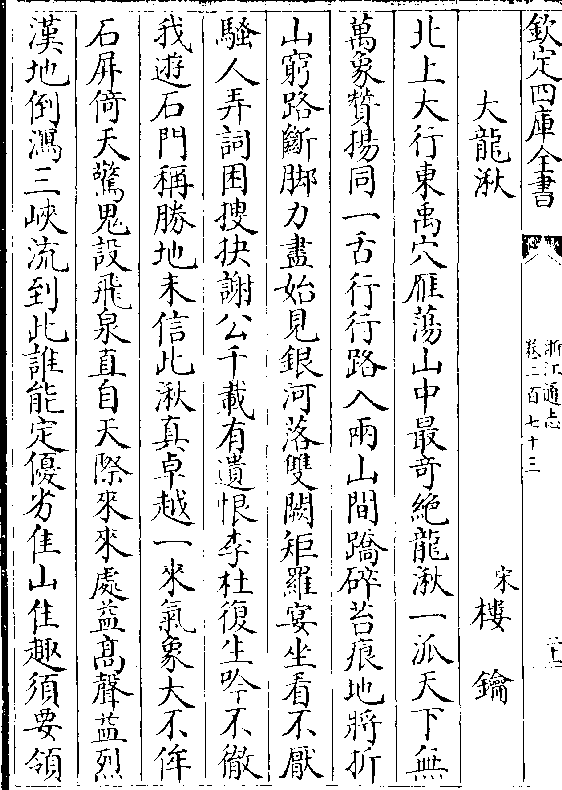 欽定四庫全書
浙江通志
卷二百七十三
大龍湫
宋樓鑰
北上大行東禹穴雁蕩山中最竒絶龍湫一派天下無
萬象贊揚同一舌行行路入兩山間蹻碎苔痕地將折
山窮路斷脚力盡始見銀河落雙闕矩羅宴坐看不厭
騷人弄詞困搜抉謝公千載有遺恨李杜復生吟不徹
我遊石門稱勝地未信此湫真卓越一來氣象大不侔
石屏倚天驚鬼設飛泉直自天際來來處益髙聲益烈
漢地倒瀉三峽流到此誰能定優劣隹山隹趣須要領